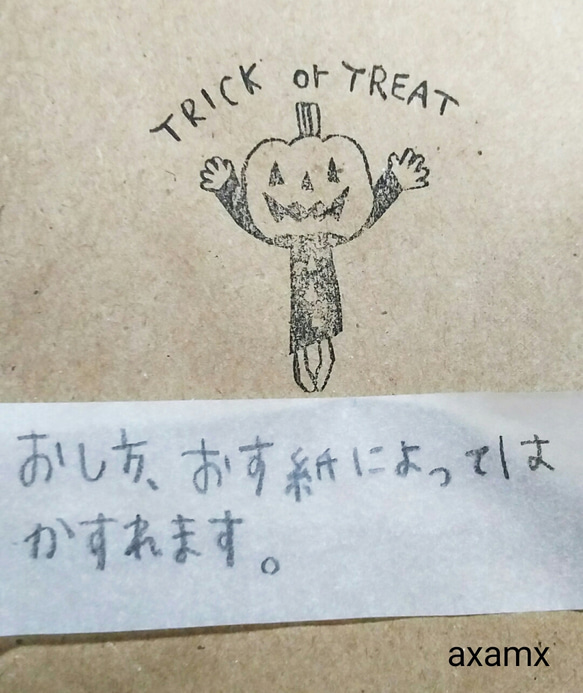 TRICK or TREAT
おし方、おす紙によっては
かすれます。
axamx